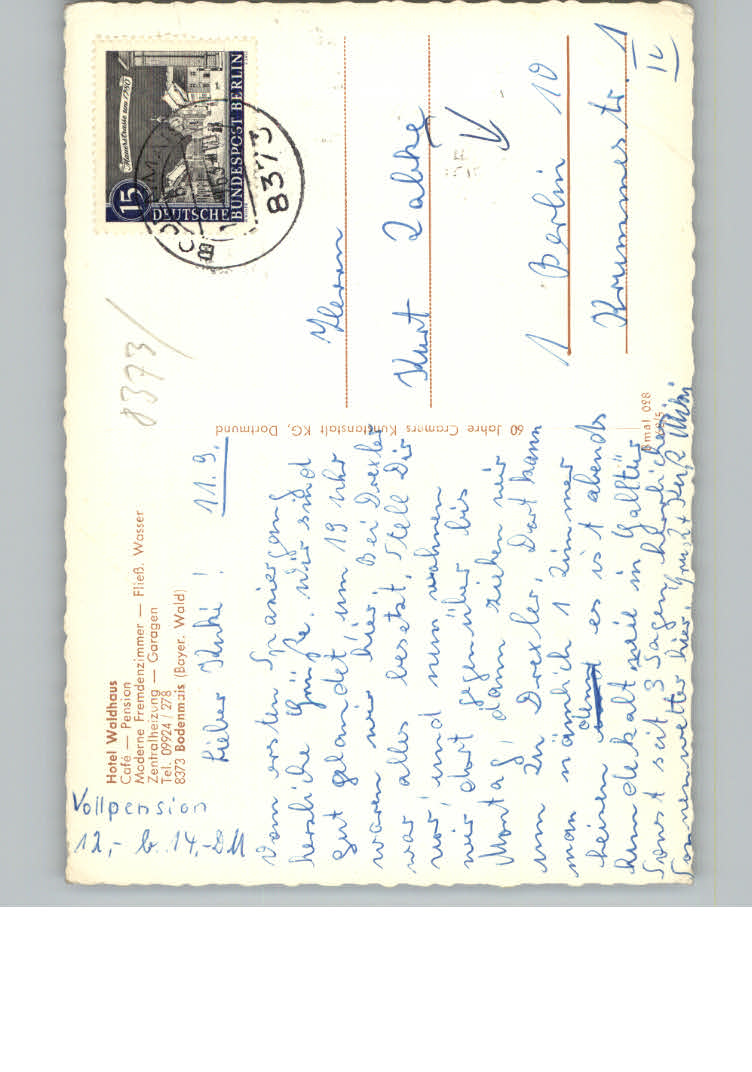 Hotel Waldhaus
Café — Pension
Moderne Fremdenzimmer — Fließ. Wasser
Zentralheizung — Garagen
Tel. 09924 / 278
8373 Bodenmais (Bayer. Wald)
Vollpension
12,- b. 14,-DM
8373
11.9.
Lieber Kuki!
Vom ersten Spaziergang
herzliche Grüße. Wir sind
gut gelandet, um 19 Uhr
waren wir hier. Bei Drexler
war alles besetzt. Stell Dir
vor, und nun wohnen
wir dort gegenüber bis
Montag, dann ziehen wir
um zu Drexler. Dort kann
man nämlich 1 Zimmer
heizen denn es ist abends
hundekalt, weil in
Sonst seit 3 Tagen herrliches
Sonnenwetter hier. Gruß + Kuß
60 Jahre Cramers Kunstanstalt KG, Dortmund
Bmai 028
Mauerstrasse um 1780
15
DEUTSCHE
BUNDESPOST BERLIN
8373
Herrn
Kurt
1 Berlin 10
Krummestr. 1
IV